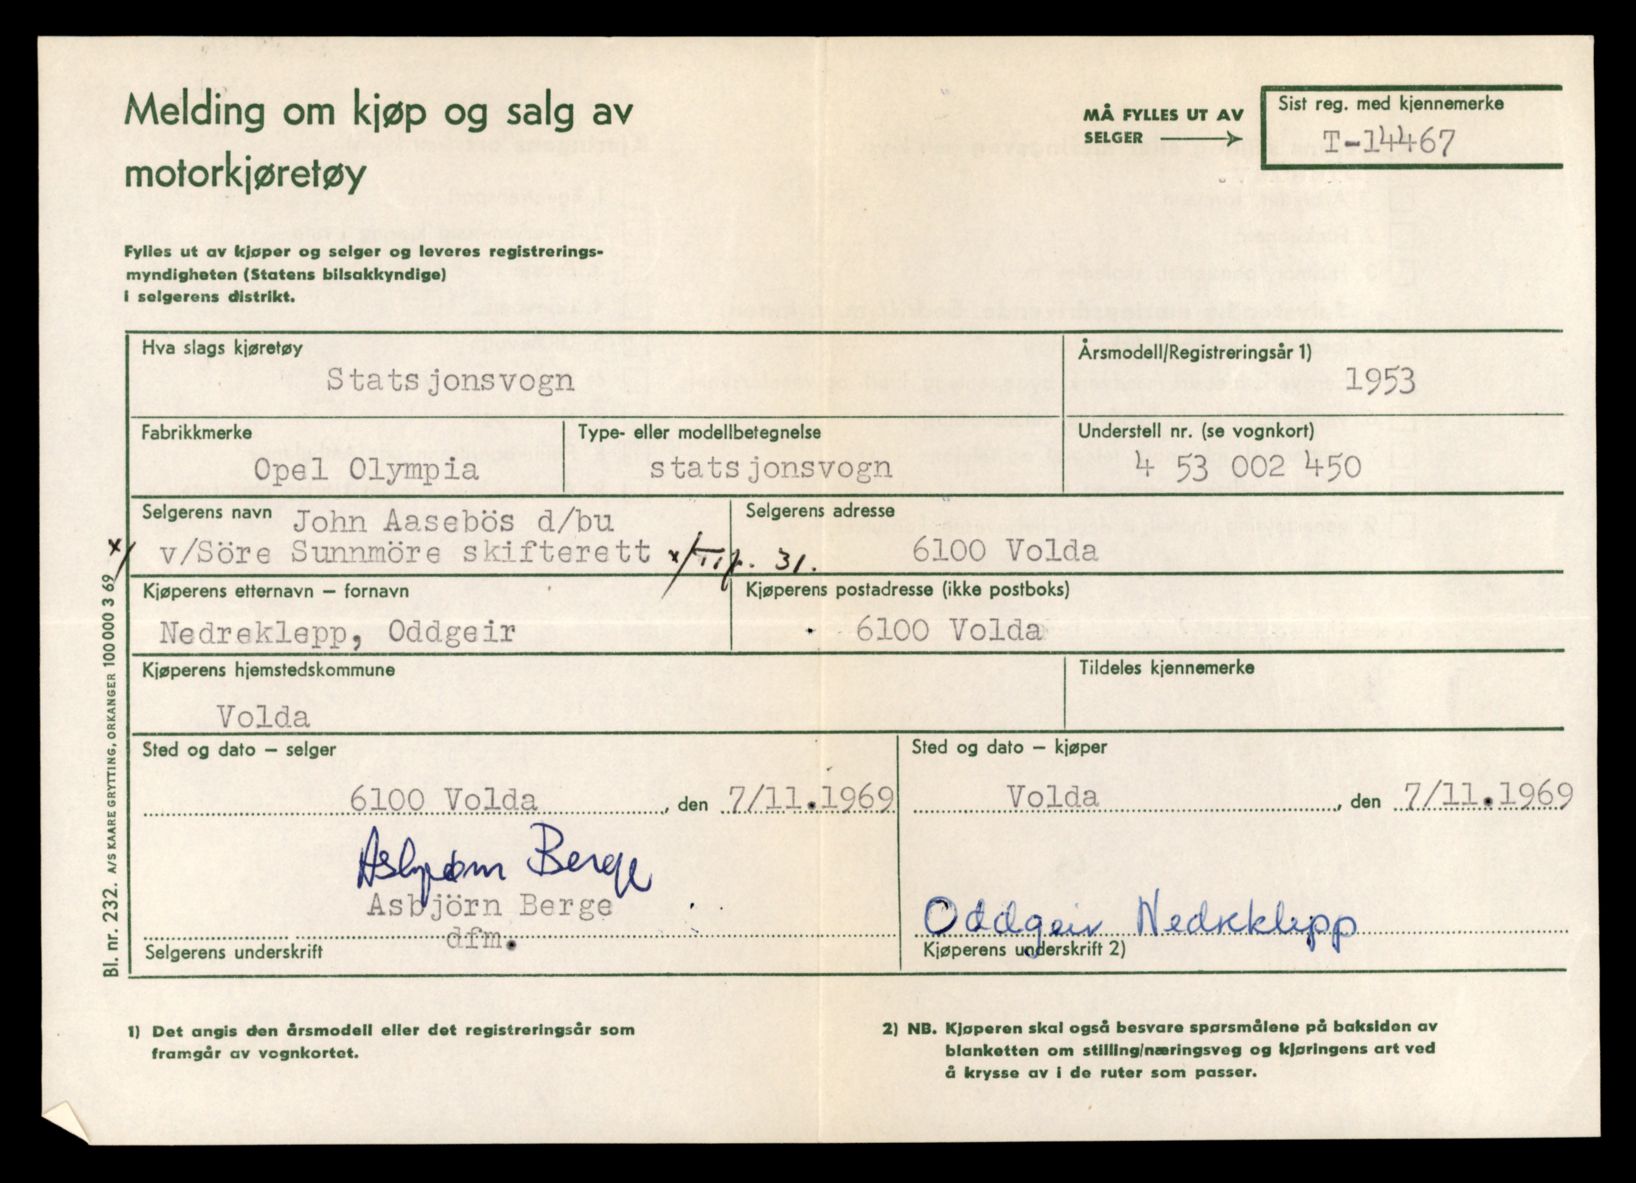 Melding om kjøp og salg av
motorkjøretøy
MÅ FYLLES UT AV
SELGER
Sist reg. med kjennemerke
T-14467
Fylles ut av kjøper og selger og leveres registrerings-
myndigheten (Statens bilsakkyndige)
i selgerens distrikt.
Hva slags kjøretøy
Statsjonsvogn
Årsmodell/Registreringsår 1)
1953
Fabrikkmerke
Opel Olympia
Type- eller modellbetegnelse
statsjonsvogn
Understell nr. (se vognkort)
4 53 002 450
Selgerens navn John Aasebös d/bu
x/ v/Söre Sunnmöre skifterett x/ 31.
Selgerens adresse
6100 Volda
Kjøperens etternavn – fornavn
Nedreklepp, Oddgeir
Kjøperens postadresse (ikke postboks)
6100 Volda
Kjøperens hjemstedskommune
Volda
Tildeles kjennemerke
Sted og dato – selger
6100 Volda, den 7/11.1969
Asbjørn Berge
Asbjörn Berge
dfm.
Selgerens underskrift
Sted og dato – kjøper
Volda, den 7/11.1969
Oddgeir Nedreklepp
Kjøperens underskrift 2)
Bl. nr. 232. A/S KAARE GRYTTING, ORKANGER 100 000 3 69
1) Det angis den årsmodell eller det registreringsår som
framgår av vognkortet.
2) NB. Kjøperen skal også besvare spørsmålene på baksiden av
blanketten om stilling/næringsveg og kjøringens art ved
å krysse av i de ruter som passer.